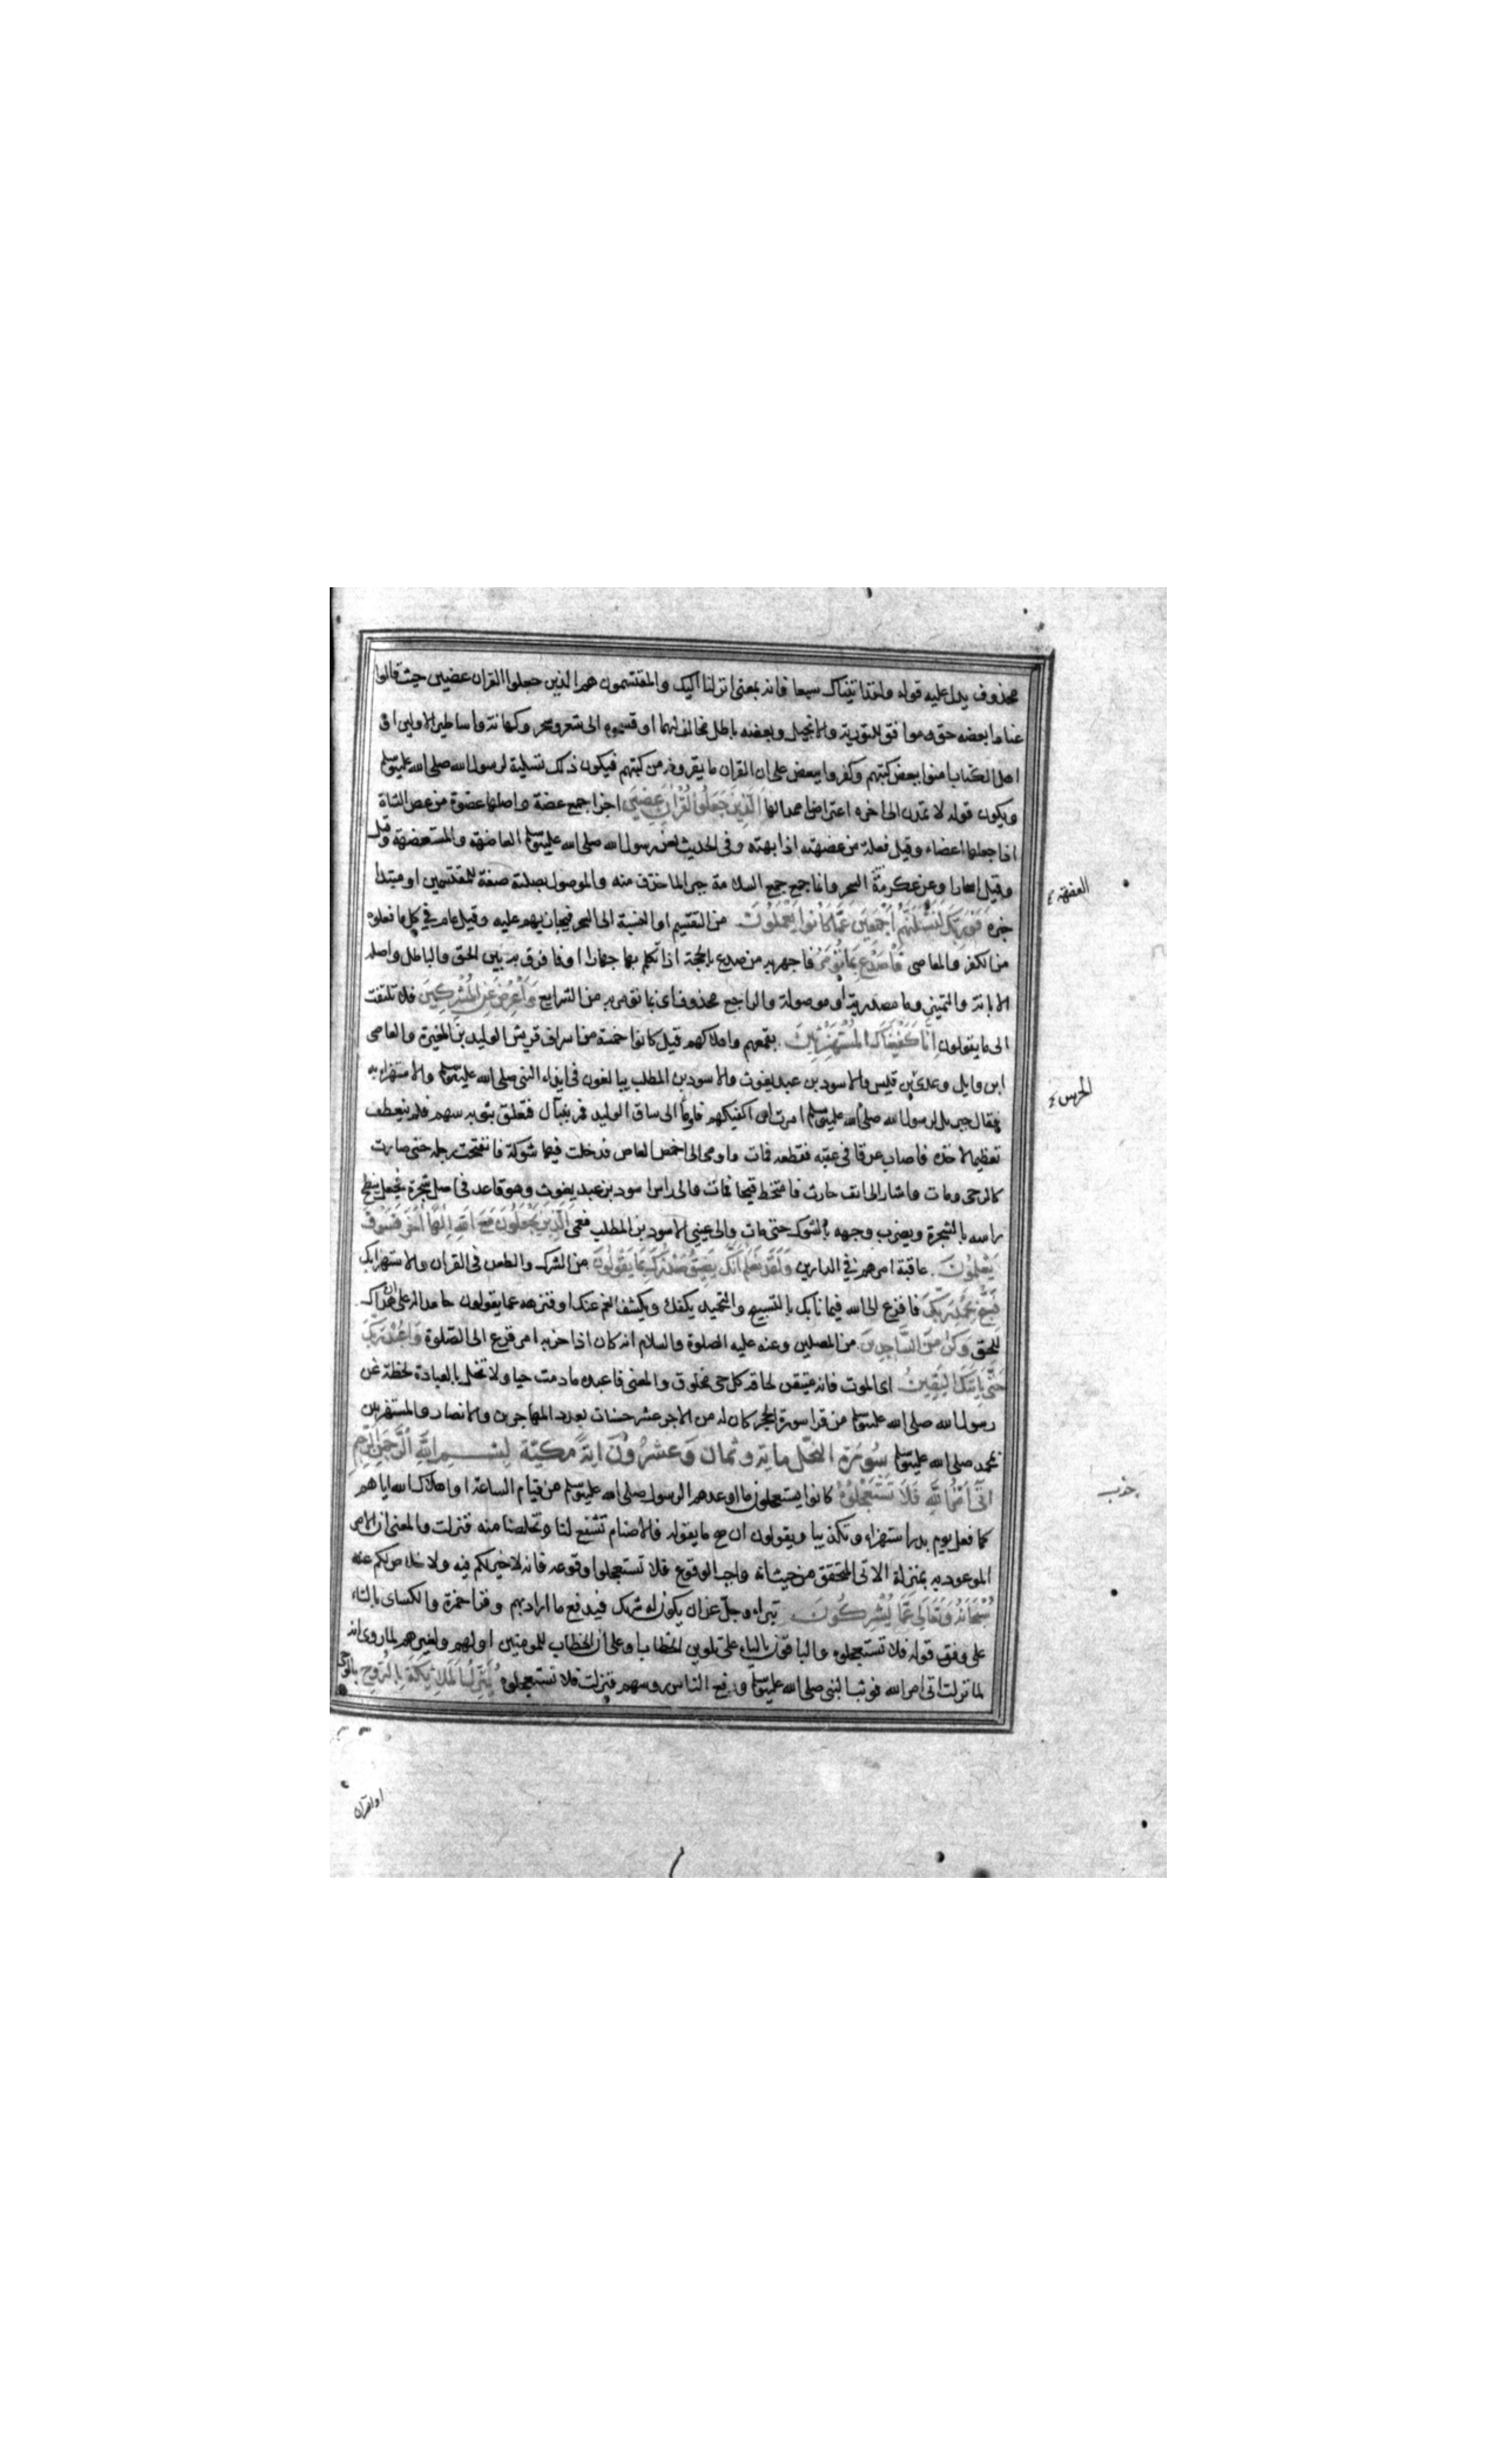 محذوف يدل عليه قوله ولقد اتيناك سبعا فانه بمعنى انزلنا اليك والمقتسمون هم الذين جعلوا القران عضين حيث قالوا
عنادا بعضه حق موافق للتورية والانجيل وبعضه باطل مخالف لهما او قسموه الى شعر وسحر وكهانة واساطير الاولين او
اهل الكتاب امنوا ببعض كتبهم وكفروا ببعض على ان القران ما يقرونه من كتبهم فيكون ذلك تسلية لرسول الله صلى الله عليه وسلم
ويكون قوله لا تمدن الى اخره اعتراضا ممدا لها الَّذِينَ جَعَلُوا الْقُرْانَ عِضِينَ اجزا جمع عضة واصلها عضوة من عضى الشاة
اذا جعلها اعضاء وقيل فعلة من عضهته اذا بهته وفى الحديث لعن رسول الله صلى الله عليه وسلم العاضهة والمستعضهة وقيل
وقيل اسحارا وعن عكرمة السحر وانما جمع جمع السلامة جبرا لما حذف منه والموصول بصلته صفة للمقتسمين او مبتدا
خبره فَوَرَبِّكَ لَنَسْئَلَنَّهُمْ اَجْمَعِينَ عَمَّا كَانُوا يَعْمَلُونَ من التقسيم او النسبة الى السحر فيجازيهم عليه وقيل عام في كل ما فعلوه
من الكفر والمعاصى فَاصْدَعْ بِمَا تُؤْمَرُ فاجهر به من صدع بالحجة اذا تكلم بها جهارا او فافرق به بين الحق والباطل واصله
الابانة والتمييز وما مصدرية او موصولة والراجع محذوف اى بما تؤمر به من الشرايع وَاَعْرِضْ عَنِ الْمُشْرِكِينَ فلا تلتفت
الى ما يقولون اِنَّا كَفَيْنَاكَ الْمُسْتَهْزِئِينَ بقمعهم واهلاكهم قيل كانوا خمسة من اشراف قريش الوليد بن المغيرة والعاصى
ابن وايل وعدى بن قليس والاسود بن عبد يغوث والاسود بن المطلب يبالغون فى ايذاء النبى صلى الله عليه وسلم والاستهزاء به
فقال جبريل لرسول الله صلى الله عليه وسلم امرت ان اكفيكهم فاومأ الى ساق الوليد فمر بنبال فتعلق بثوبه سهم فلم ينعطف
تعظيما لاخذه فاصاب عرقا فى عقبه فقطعه فمات واومى الى اخمص العاص فدخلت فيها شوكة فانتفخت رجله حتى صارت
كالرحى ومات واشار الى انف حارث فامتخط قيحا فمات والى راس اسود بن عبد يغوث وهو قاعد فى اصل شجرة فجعل ينطح
راسه بالشجرة ويضرب وجهه بالشوك حتى مات والى عينى الاسود بن المطلب فعمى الَّذِينَ يَجْعَلُونَ مَعَ اللهِ اِلهًا اخَرَ فَسَوْفَ
يَعْلَمُونَ عاقبة امرهم في الدارين وَلَقَدْ نَعْلَمُ اَنَّكَ يَضِيقُ صَدْرُكَ بِمَا يَقُولُونَ من الشرك والطعن فى القران والاستهزا بك
فَسَبِّحْ بِحَمْدِ رَبِّكَ فافزع الى الله فيما نابك بالتسبيح والتحميد يكفك ويكشف الغم عنك او فنزهه عما يقولون حامدا له على ان هداك
للحق وَكُنْ مِنَ السَّاجِدِينَ من المصلين وعنه عليه الصلوة والسلام انه كان اذا حزبه امر فزع الى الصلوة وَاعْبُدْ رَبَّكَ
حَتَّى يَاْتِيَكَ الْيَقِينُ اى الموت فانه متيقن لحاقه كل حى مخلوق والمعنى فاعبده مادمت حيا ولا تخل بالعبادة لحظة عن
رسول الله صلى الله عليه وسلم من قرا سورة الحجر كان له من الاجر عشر حسنات بعدد المهاجرين والانصار والمستهزين
بمحمد صلى الله عليه وسلم سُورَة النحل ماية وثمان وَعشرُونَ ايَةً مكيّة بِسْمِ اللهِ الرَّحْمنِ الرَّحِيمِ
اَتى اَمْرُ اللهِ فَلَا تَسْتَعْجِلُوهُ كانوا يستعجلون ما اوعدهم الرسول صلى الله عليه وسلم من قيام الساعة او اهلاك الله اياهم
كما فعل يوم بدر استهزاء وتكذيبا ويقولون ان صح ما يقوله فالاصنام تشفع لنا وتخلصنا منه فنزلت والمعنى ان الامر
الموعود به بمنزلة الاتى المتحقق من حيث انه واجب الوقوع فلا تستعجلوا وقوعه فانه لا خير لكم فيه ولا خلاص لكم عنه
سُبْحَانَهُ وَتَعَالى عَمَّا يُشْرِكُونَ تبرا وجل عن ان يكون له شريك فيدفع ما اراد بهم وقرا حمزة والكساى بالتاء
على وفق قوله فلا تستعجلوه والباقون بالياء على تلوين الخطاب او على ان الخطاب للمومنين او لهم ولغيرهم لما روى انه
لما نزلت اتى امر الله فوثب النبى صلى الله عليه وسلم ورفع الناس روسهم فنزلت فلا تستعجلوه يُنَزِّلُ الْمَلَائِكَةَ بِالرُّوحِ بالوحى
العضهة
الحرس
حزب
او القران